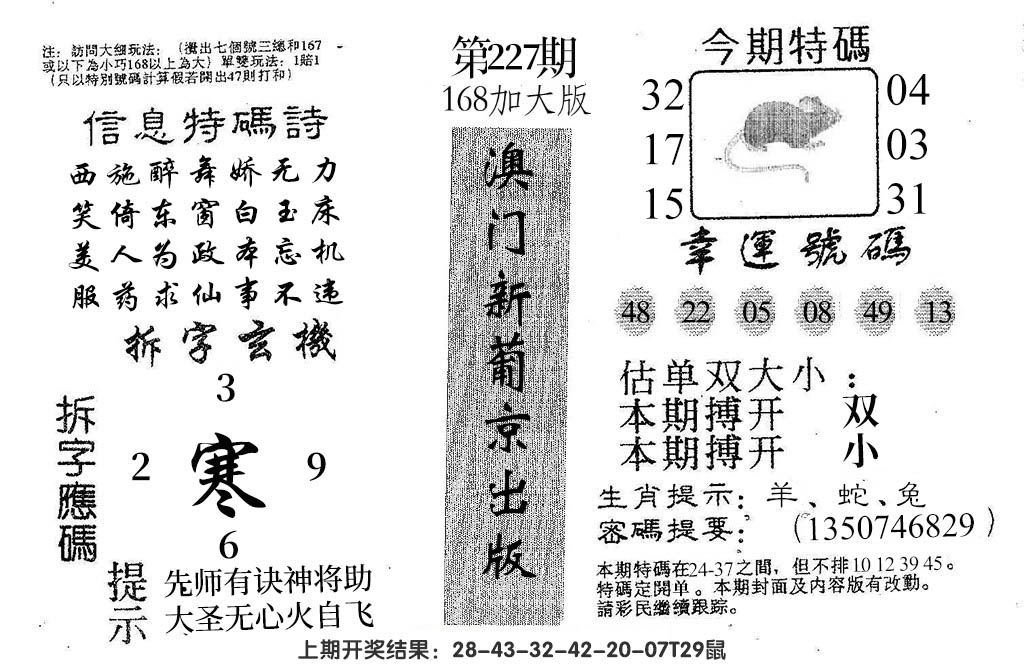 注：訪問大细玩法：（攪出七個號三總和167
或以下為小巧168以上為大）單雙玩法：1賠1
（只以特別號碼計算假若開出47則打和）
信息特碼詩
西施醉舞娇无力
笑倚东窗白玉床
美人为政本忘机
服药求仙事不违
拆字玄機
3
2 寒 9
6
拆字應碼
提示
先师有诀神将助
大圣无心火自飞
第227期
168加大版
澳门新葡京出版
今期特碼
32 04
17 03
15 31
幸運號碼
48 22 05 08 49 13
估单双大小：
本期搏开 双
本期搏开 小
生肖提示：羊、蛇、兔
密碼提要：（1350746829）
本期特碼在24-37之間，但不排10 12 39 45。
特碼定開单。本期封面及内容版有改動。
請彩民繼續跟踪。
上期开奖结果：28-43-32-42-20-07T29鼠